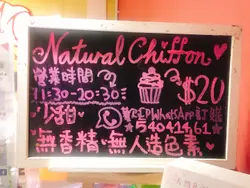 Natural Chiffon
營業時間
11:30-20:30
$20
少甜
WhatsApp訂購
54041461
無香精 無人造色素